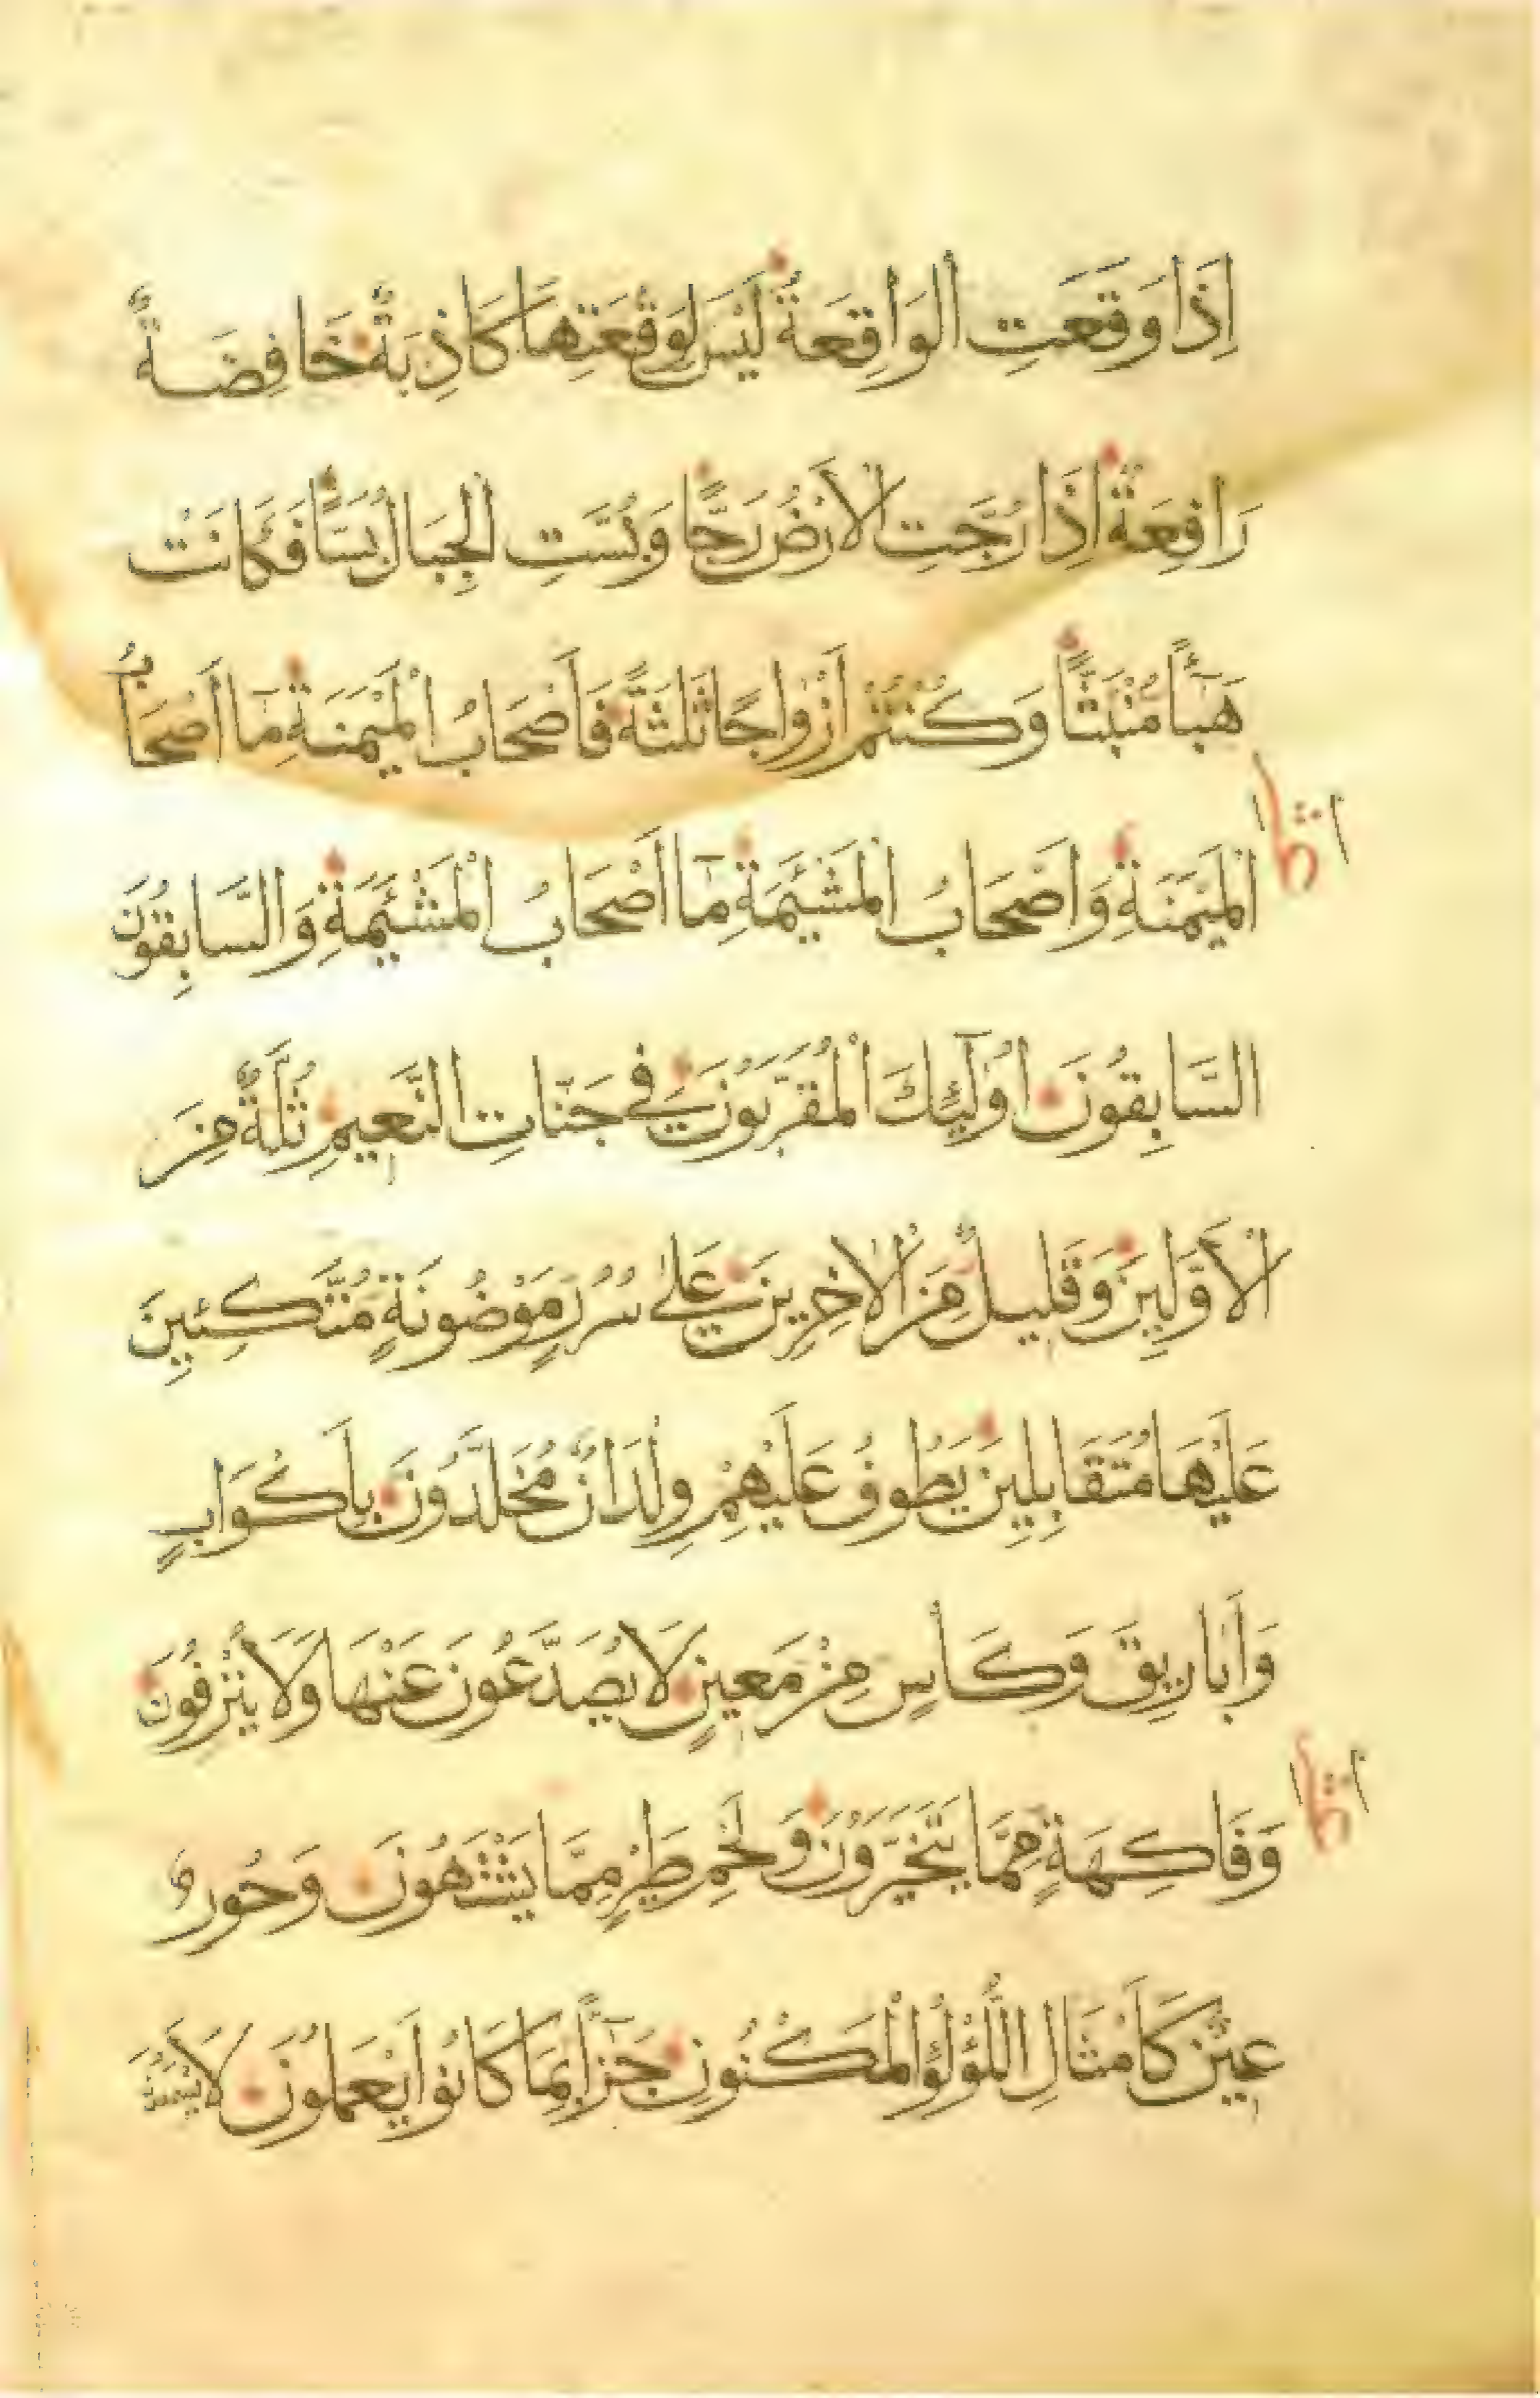 اِذَا وَقَعَتِ الْوَاقِعَةُ لَيْسَ لِوَقْعَتِهَا كَاذِبَةٌ خَافِضَةٌ
رَافِعَةٌ اِذَا رُجَّتِ الْاَرْضُ رَجًّا وَبُسَّتِ الْجِبَالُ بَسًّا فَكَانَتْ
هَبَٓاءً مُنْبَثًّا وَكُنْتُمْ اَزْوَاجًا ثَلٰثَةً فَاَصْحَابُ الْمَيْمَنَةِ مَٓا اَصْحَابُ
الْمَيْمَنَةِ وَاَصْحَابُ الْمَشْئَمَةِ مَٓا اَصْحَابُ الْمَشْئَمَةِ وَالسَّابِقُونَ
السَّابِقُونَ اُولٰٓئِكَ الْمُقَرَّبُونَ فِي جَنَّاتِ النَّعِيمِ ثُلَّةٌ مِنَ
الْاَوَّلِينَ وَقَلِيلٌ مِنَ الْاٰخِرِينَ عَلٰى سُرُرٍ مَوْضُونَةٍ مُتَّكِئِينَ
عَلَيْهَا مُتَقَابِلِينَ يَطُوفُ عَلَيْهِمْ وِلْدَانٌ مُخَلَّدُونَ بِاَكْوَابٍ
وَاَبَارِيقَ وَكَأْسٍ مِنْ مَعِينٍ لَا يُصَدَّعُونَ عَنْهَا وَلَا يُنْزِفُونَ
وَفَاكِهَةٍ مِمَّا يَتَخَيَّرُونَ وَلَحْمِ طَيْرٍ مِمَّا يَشْتَهُونَ وَحُورٌ
عِينٌ كَاَمْثَالِ اللُّؤْلُؤِ الْمَكْنُونِ جَزَٓاءً بِمَا كَانُوا يَعْمَلُونَ لَا